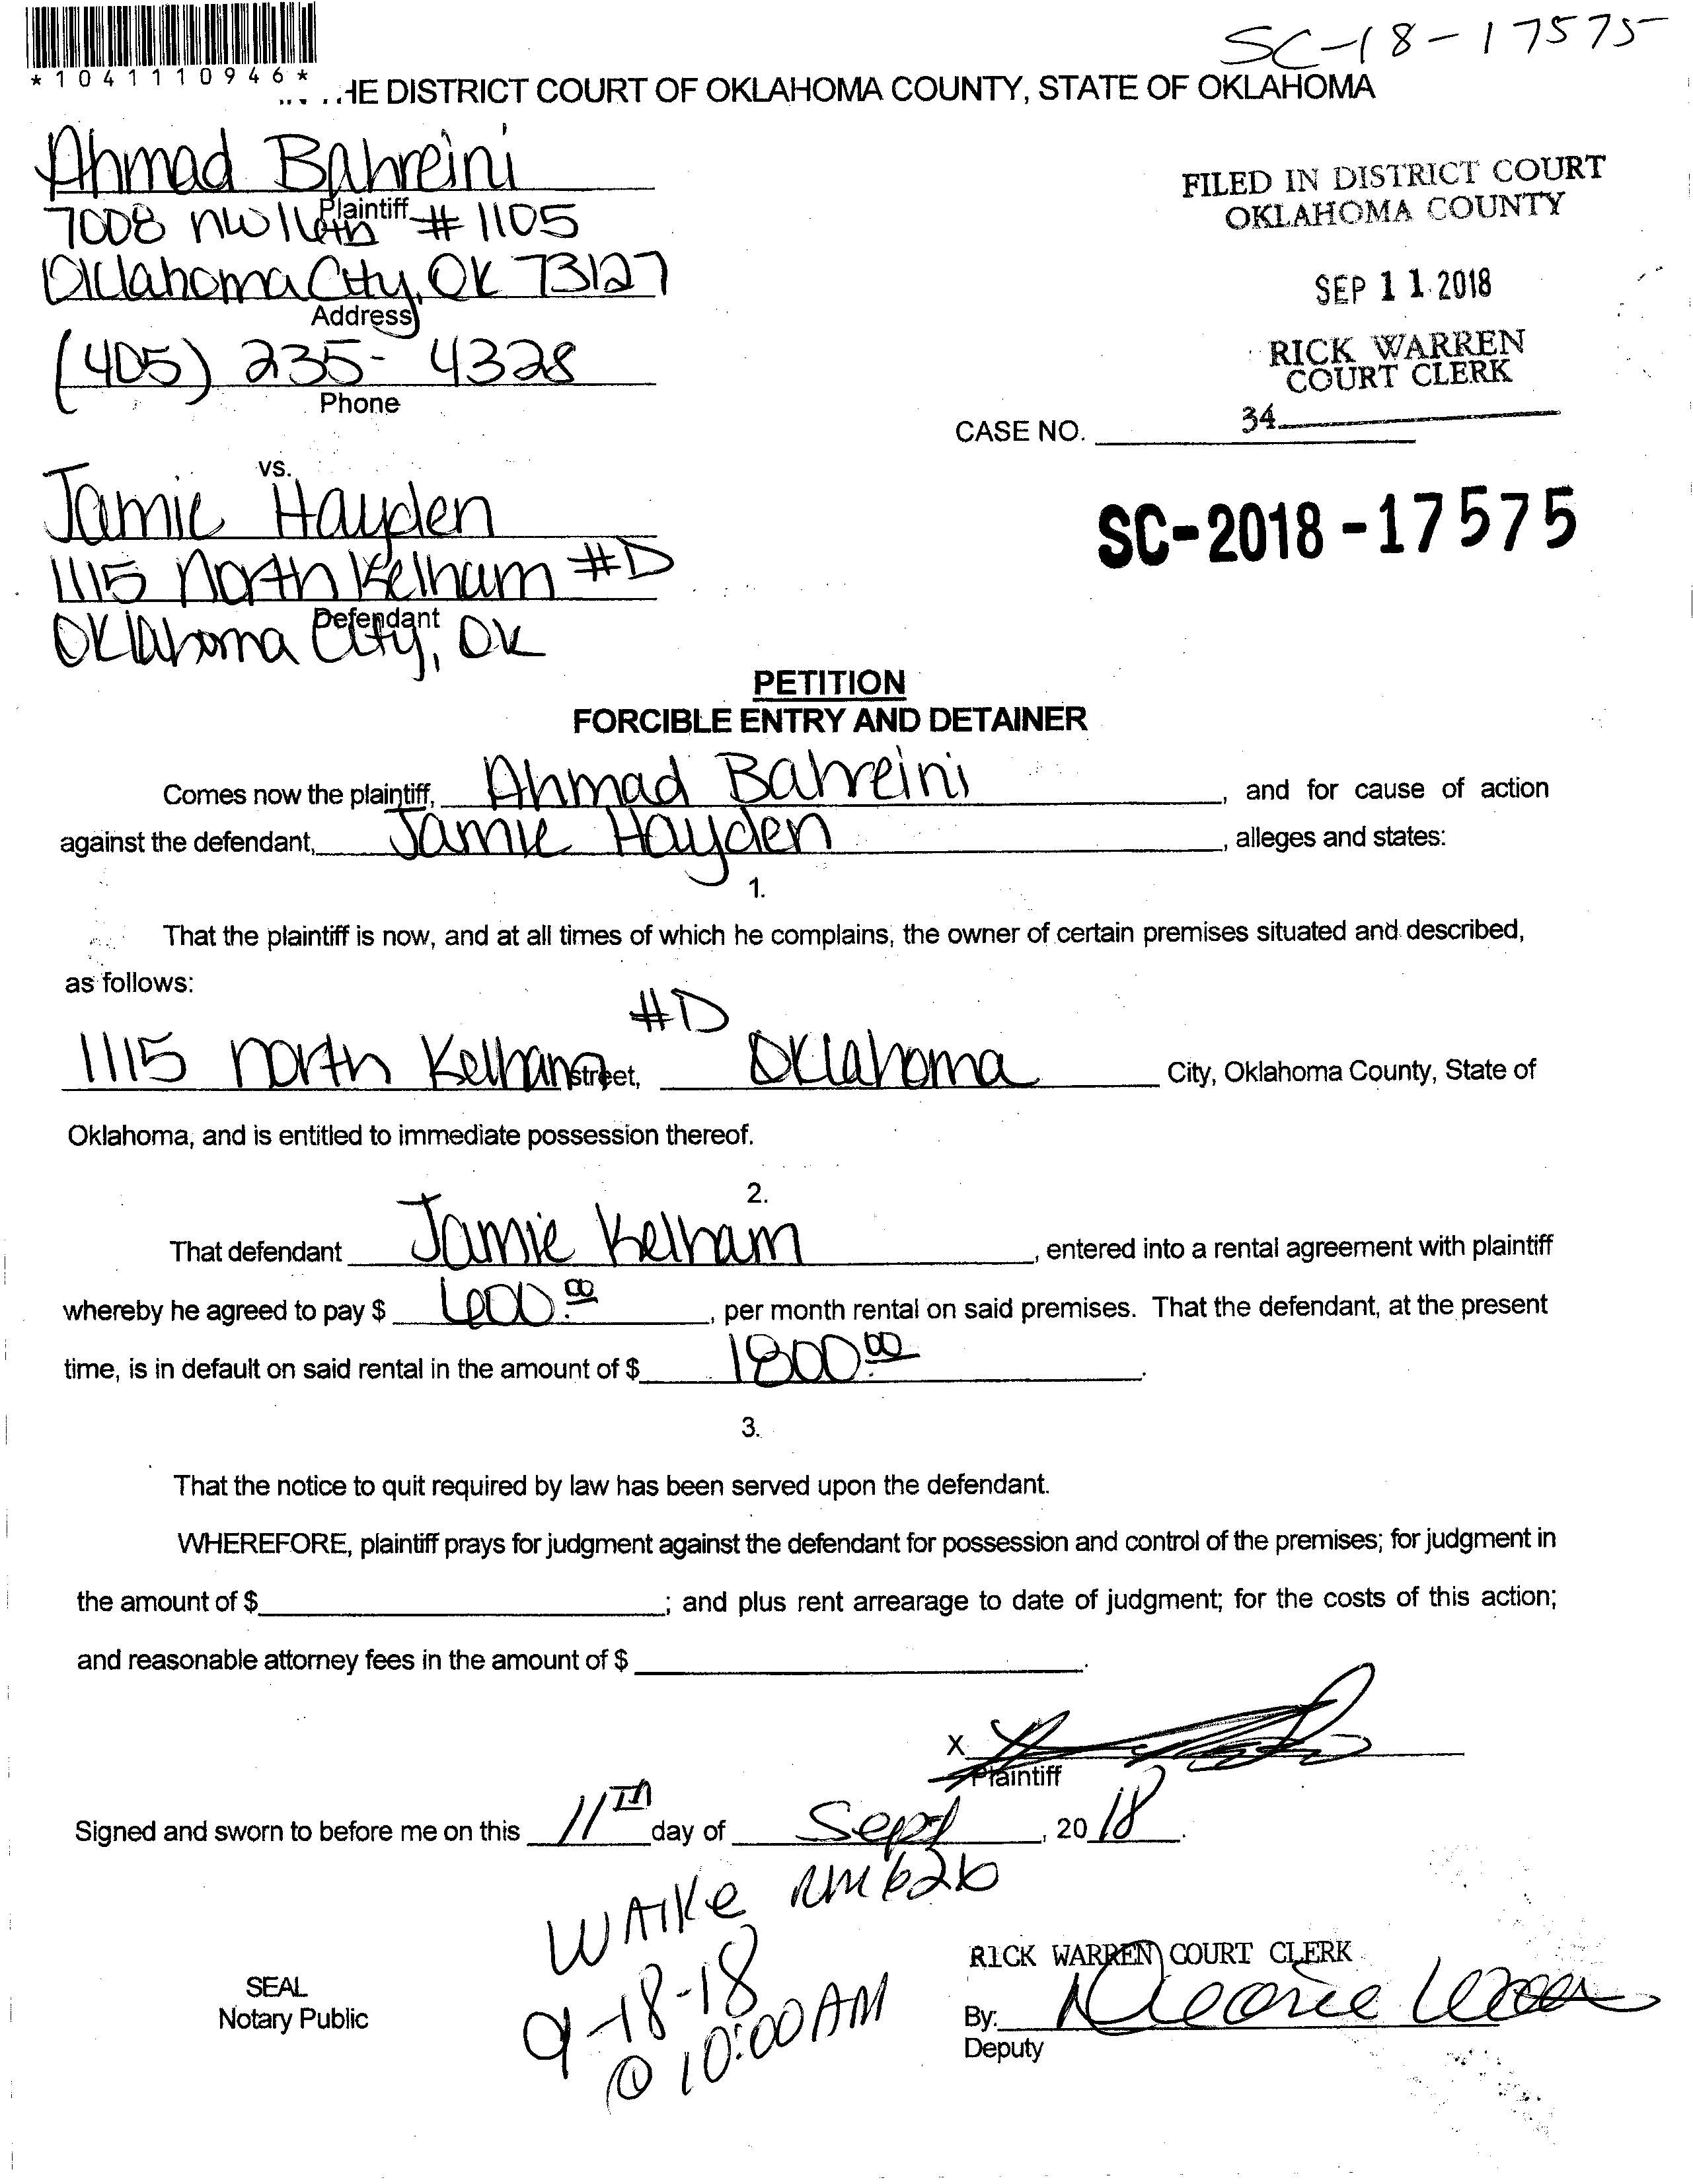 SC-18-17575
*1041110946*
HE DISTRICT COURT OF OKLAHOMA COUNTY, STATE OF OKLAHOMA
Ahmad Bahreini
Plaintiff
7008 NW 16th #1105
Oklahoma City, OK 73127
Address
(405) 235-4328
Phone
FILED IN DISTRICT COURT
OKLAHOMA COUNTY
SEP 11 2018
RICK WARREN
COURT CLERK
34
CASE NO.
SC-2018-17575
vs.
Jamie Hayden
1115 North Kelham #D
Defendant
Oklahoma City, OK
PETITION
FORCIBLE ENTRY AND DETAINER
Comes now the plaintiff, Ahmad Bahreini, and for cause of action
against the defendant, Jamie Hayden, alleges and states:
1.
That the plaintiff is now, and at all times of which he complains, the owner of certain premises situated and described,
as follows:
#D
1115 North Kelham street, Oklahoma City, Oklahoma County, State of
Oklahoma, and is entitled to immediate possession thereof.
2.
That defendant Jamie Kelham, entered into a rental agreement with plaintiff
whereby he agreed to pay $ 600.00, per month rental on said premises. That the defendant, at the present
time, is in default on said rental in the amount of $ 1800.00.
3.
That the notice to quit required by law has been served upon the defendant.
WHEREFORE, plaintiff prays for judgment against the defendant for possession and control of the premises; for judgment in
the amount of $ ; and plus rent arrearage to date of judgment; for the costs of this action;
and reasonable attorney fees in the amount of $ .
X
Plaintiff
Signed and sworn to before me on this 11TH day of Sept, 2018.
WAIKE RM 626
9-18-18
@ 10:00 AM
SEAL
Notary Public
RICK WARREN COURT CLERK
By:
Deputy